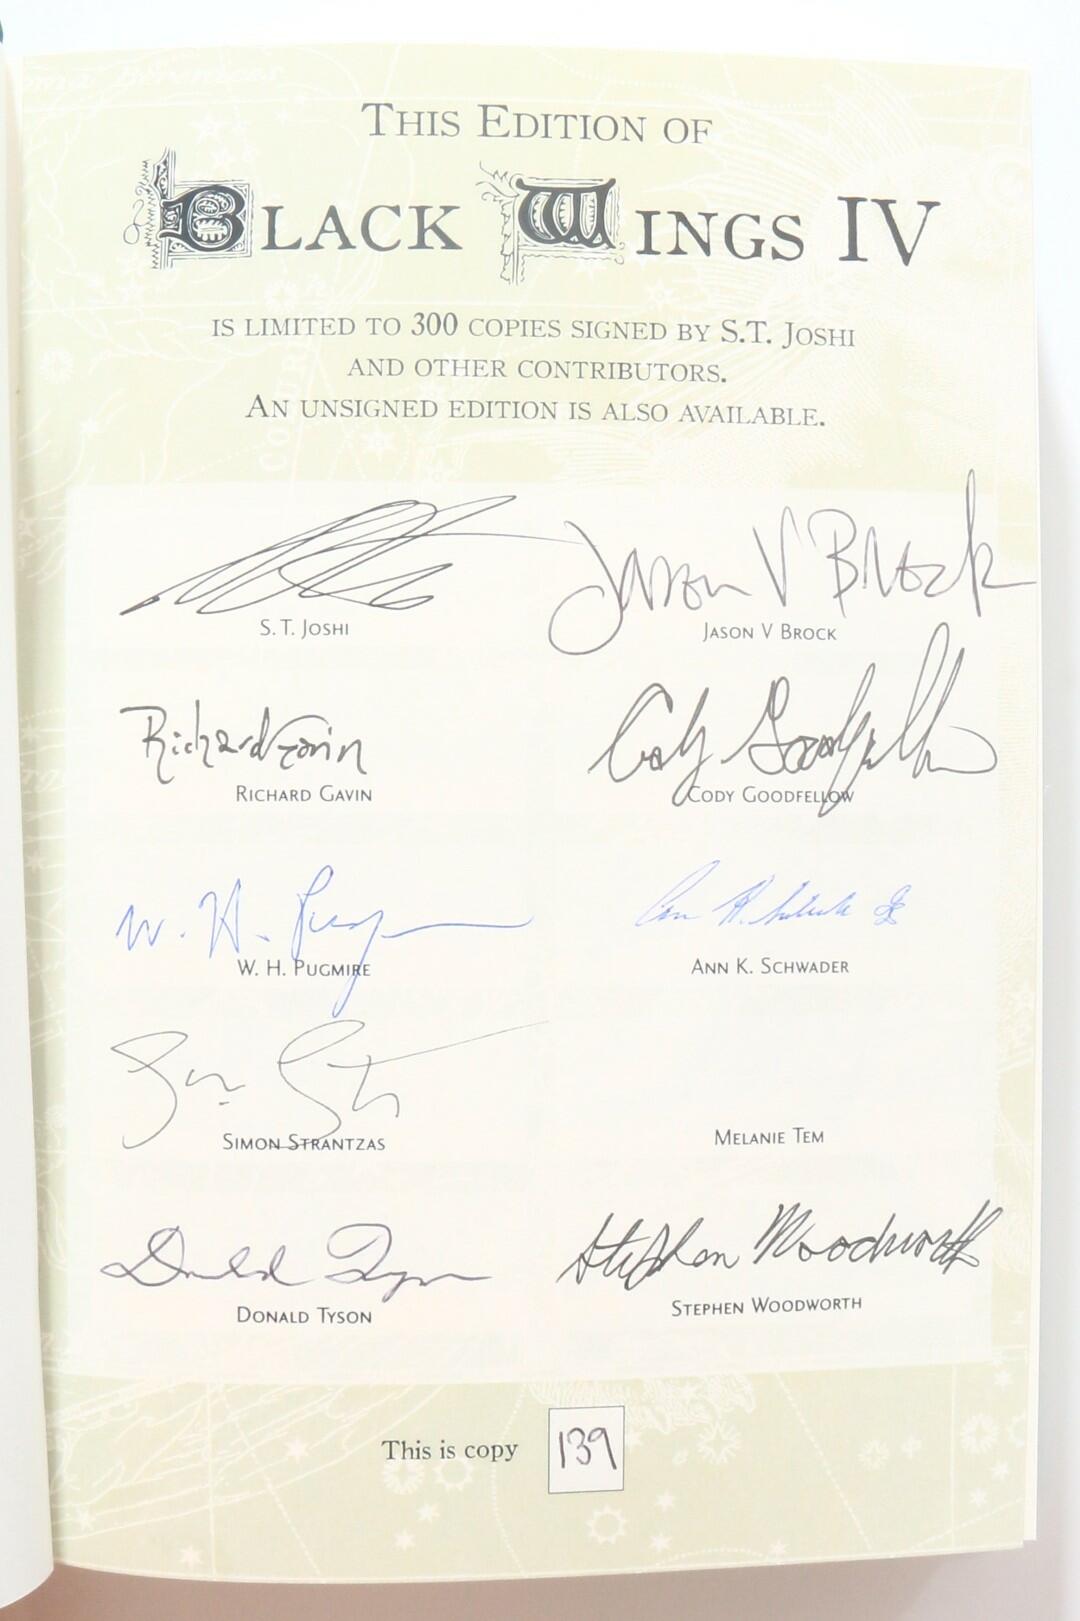 THIS EDITION OF
BLACK WINGS IV
IS LIMITED TO 300 COPIES SIGNED BY S.T. JOSHI
AND OTHER CONTRIBUTORS.
AN UNSIGNED EDITION IS ALSO AVAILABLE.
Jason V Brock
S.T. JOSHI
JASON V BROCK
Richard Gavin
Cody Goodfellow
RICHARD GAVIN
CODY GOODFELLOW
W. H. Pugmire
W. H. PUGMIRE
ANN K. SCHWADER
SIMON STRANTZAS
MELANIE TEM
Donald Tyson
Stephen Woodworth
DONALD TYSON
STEPHEN WOODWORTH
This is copy 139